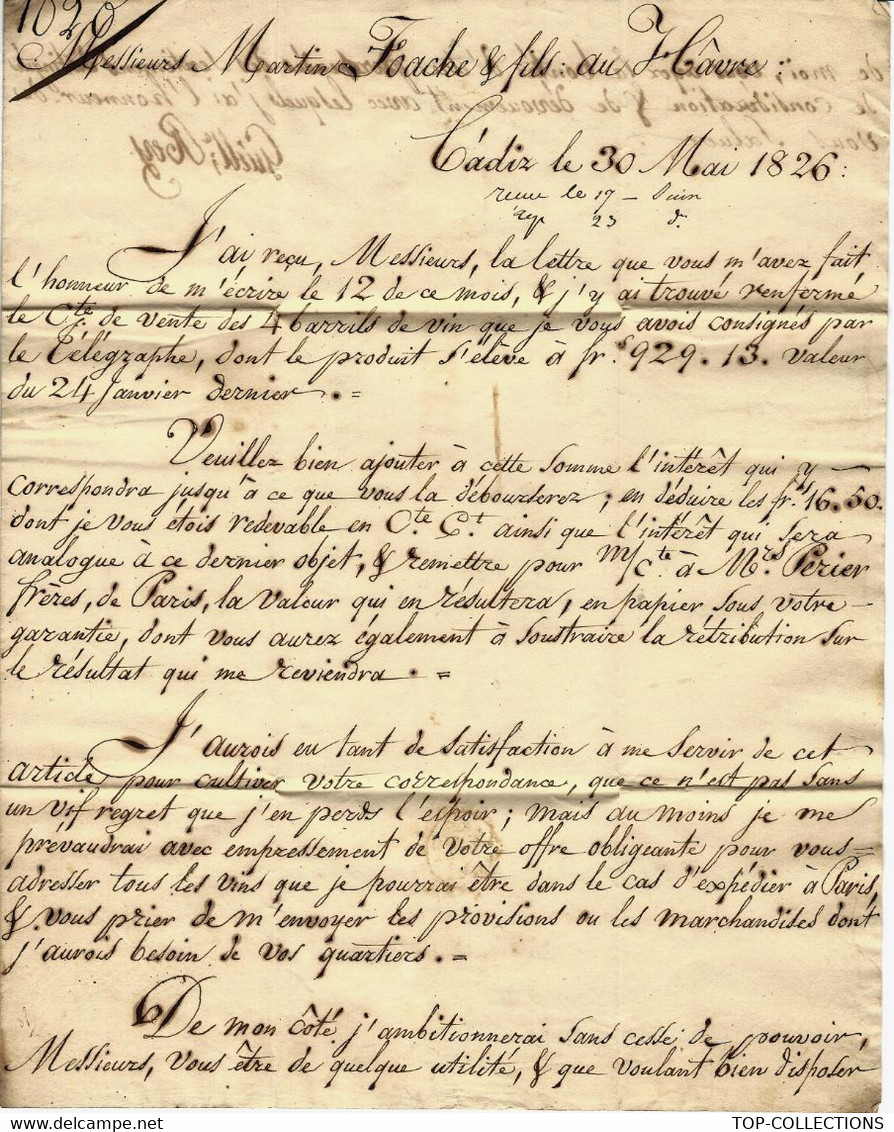 1020
Messieurs Martin Foache & fils : au Hâvre ;
Cádiz le 30 Mai 1826 :
reçue le 17 - Juin
rép 23 d.
J'ai reçu, Messieurs, la lettre que vous m'avez fait
l'honneur de m'écrire le 12 de ce mois, & j'y ai trouvé renfermé
le Cte. de vente des 4 barrils de vin que je vous avois consignés par
le Télégraphe, dont le produit s'élève à frs 929. 13. valeur
du 24 Janvier dernier . =
Veuillez bien ajouter à cette somme l'intérêt qui y —
correspondra jusqu'à ce que vous la débourserez ; en déduire les frs 16.50.
dont je vous étois redevable en Cte. Ct. ainsi que l'intérêt qui sera
analogue à ce dernier objet, & remettre pour m/cte à Mrs. Perier
frères, de Paris, la valeur qui en résultera, en papier sous votre —
garantie, dont vous aurez également à soustraire la rétribution sur
le résultat qui me reviendra . =
J'aurois eu tant de satisfaction à me servir de cet
article pour cultiver votre correspondance, que ce n'est pas sans
un vif regret que j'en perds l'espoir ; mais au moins je me
prévaudrai avec empressement de votre offre obligeante pour vous =
adresser tous les vins que je pourrai être dans le cas d'expédier à Paris,
& vous prier de m'envoyer les provisions ou les marchandises dont
j'aurois besoin de vos quartiers. =
De mon côté j'ambitionnerai sans cesse de pouvoir,
Messieurs, vous être de quelque utilité, & que voulant bien disposer
TOP-COLLECTIONS